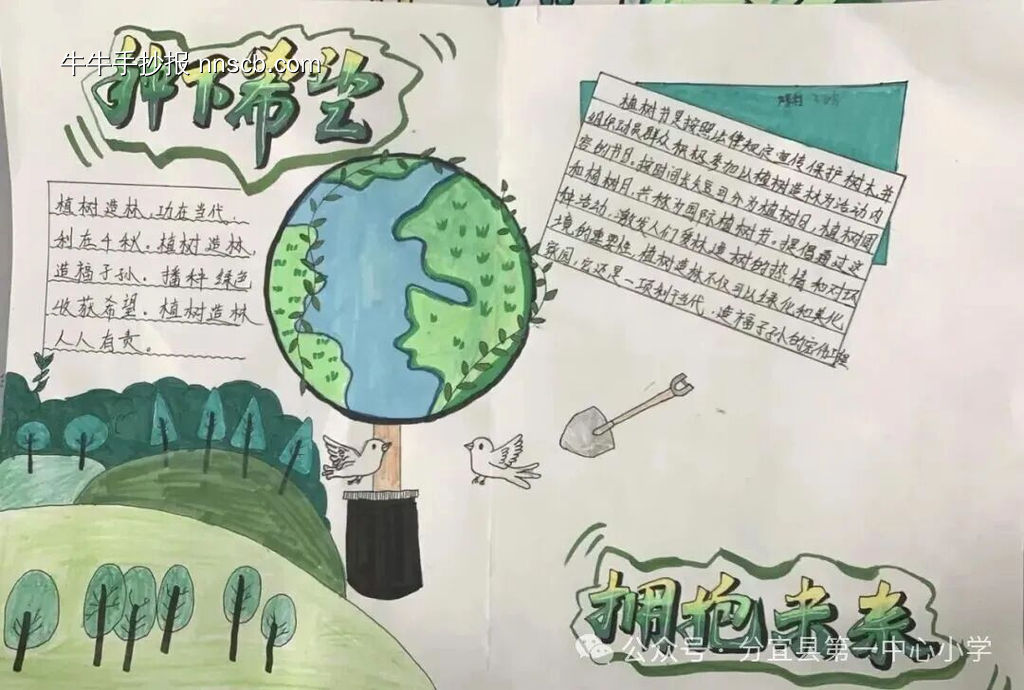 种下希望
牛牛手抄报 nnscb.com
植树造林，功在当代，
利在千秋。植树造林，
造福子孙。播种绿色
收获希望。植树造林
人人有责。
植树节是按照法律规定宣传保护树木，并
组织动员群众积极参加以植树造林为活动内
容的节日。按时间长短可分为植树日、植树周
和植树月，共称为国际植树节。提倡通过这
种活动，激发人们爱林造树的热情和对环
境的重要性。植树造林不仅可以绿化和美化
家园，它还是一项利于当代、造福子孙的
拥抱未来
公众号·分宜县第一中心小学